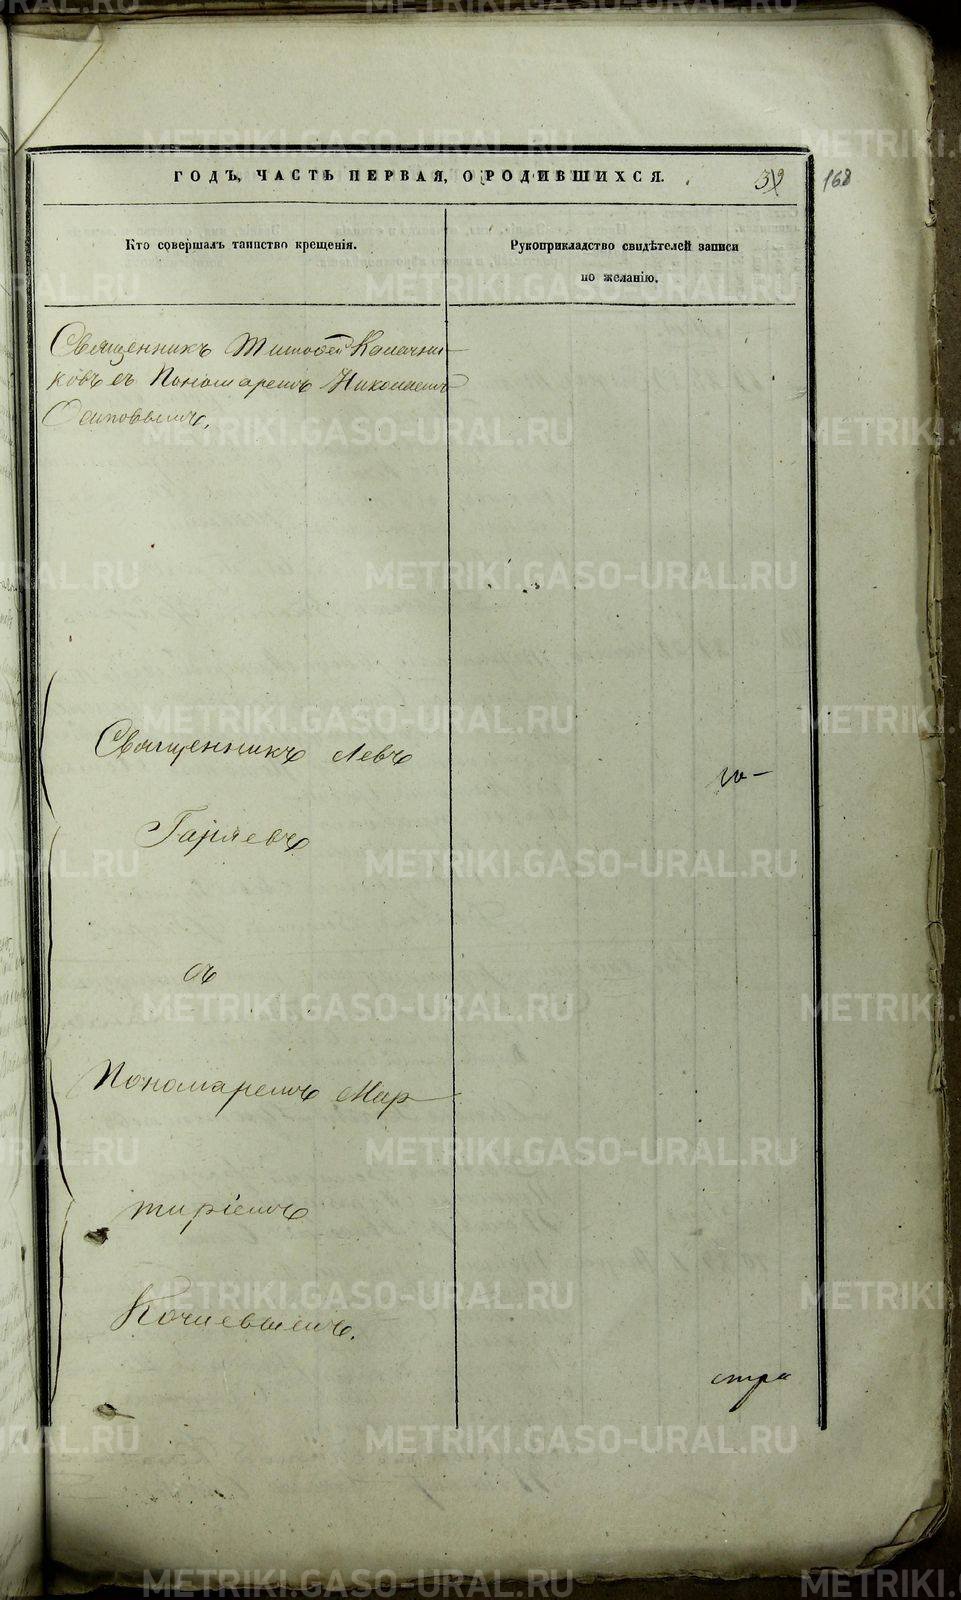 ГОДЪ, ЧАСТЬ ПЕРВАЯ, О РОДИВШИХСЯ.
39
168
Кто совершалъ таинство крещенія.
Рукоприкладство свидѣтелей записи
по желанію.
Священникъ Тимофей Калачни-
ковъ съ Пономаремъ Николаемъ
Осиповымъ.
Священникъ Левъ
Гаряевъ
съ
Пономаремъ Мар-
тиріемъ
Кочневымъ.
стра
METRIKI.GASO-URAL.RU